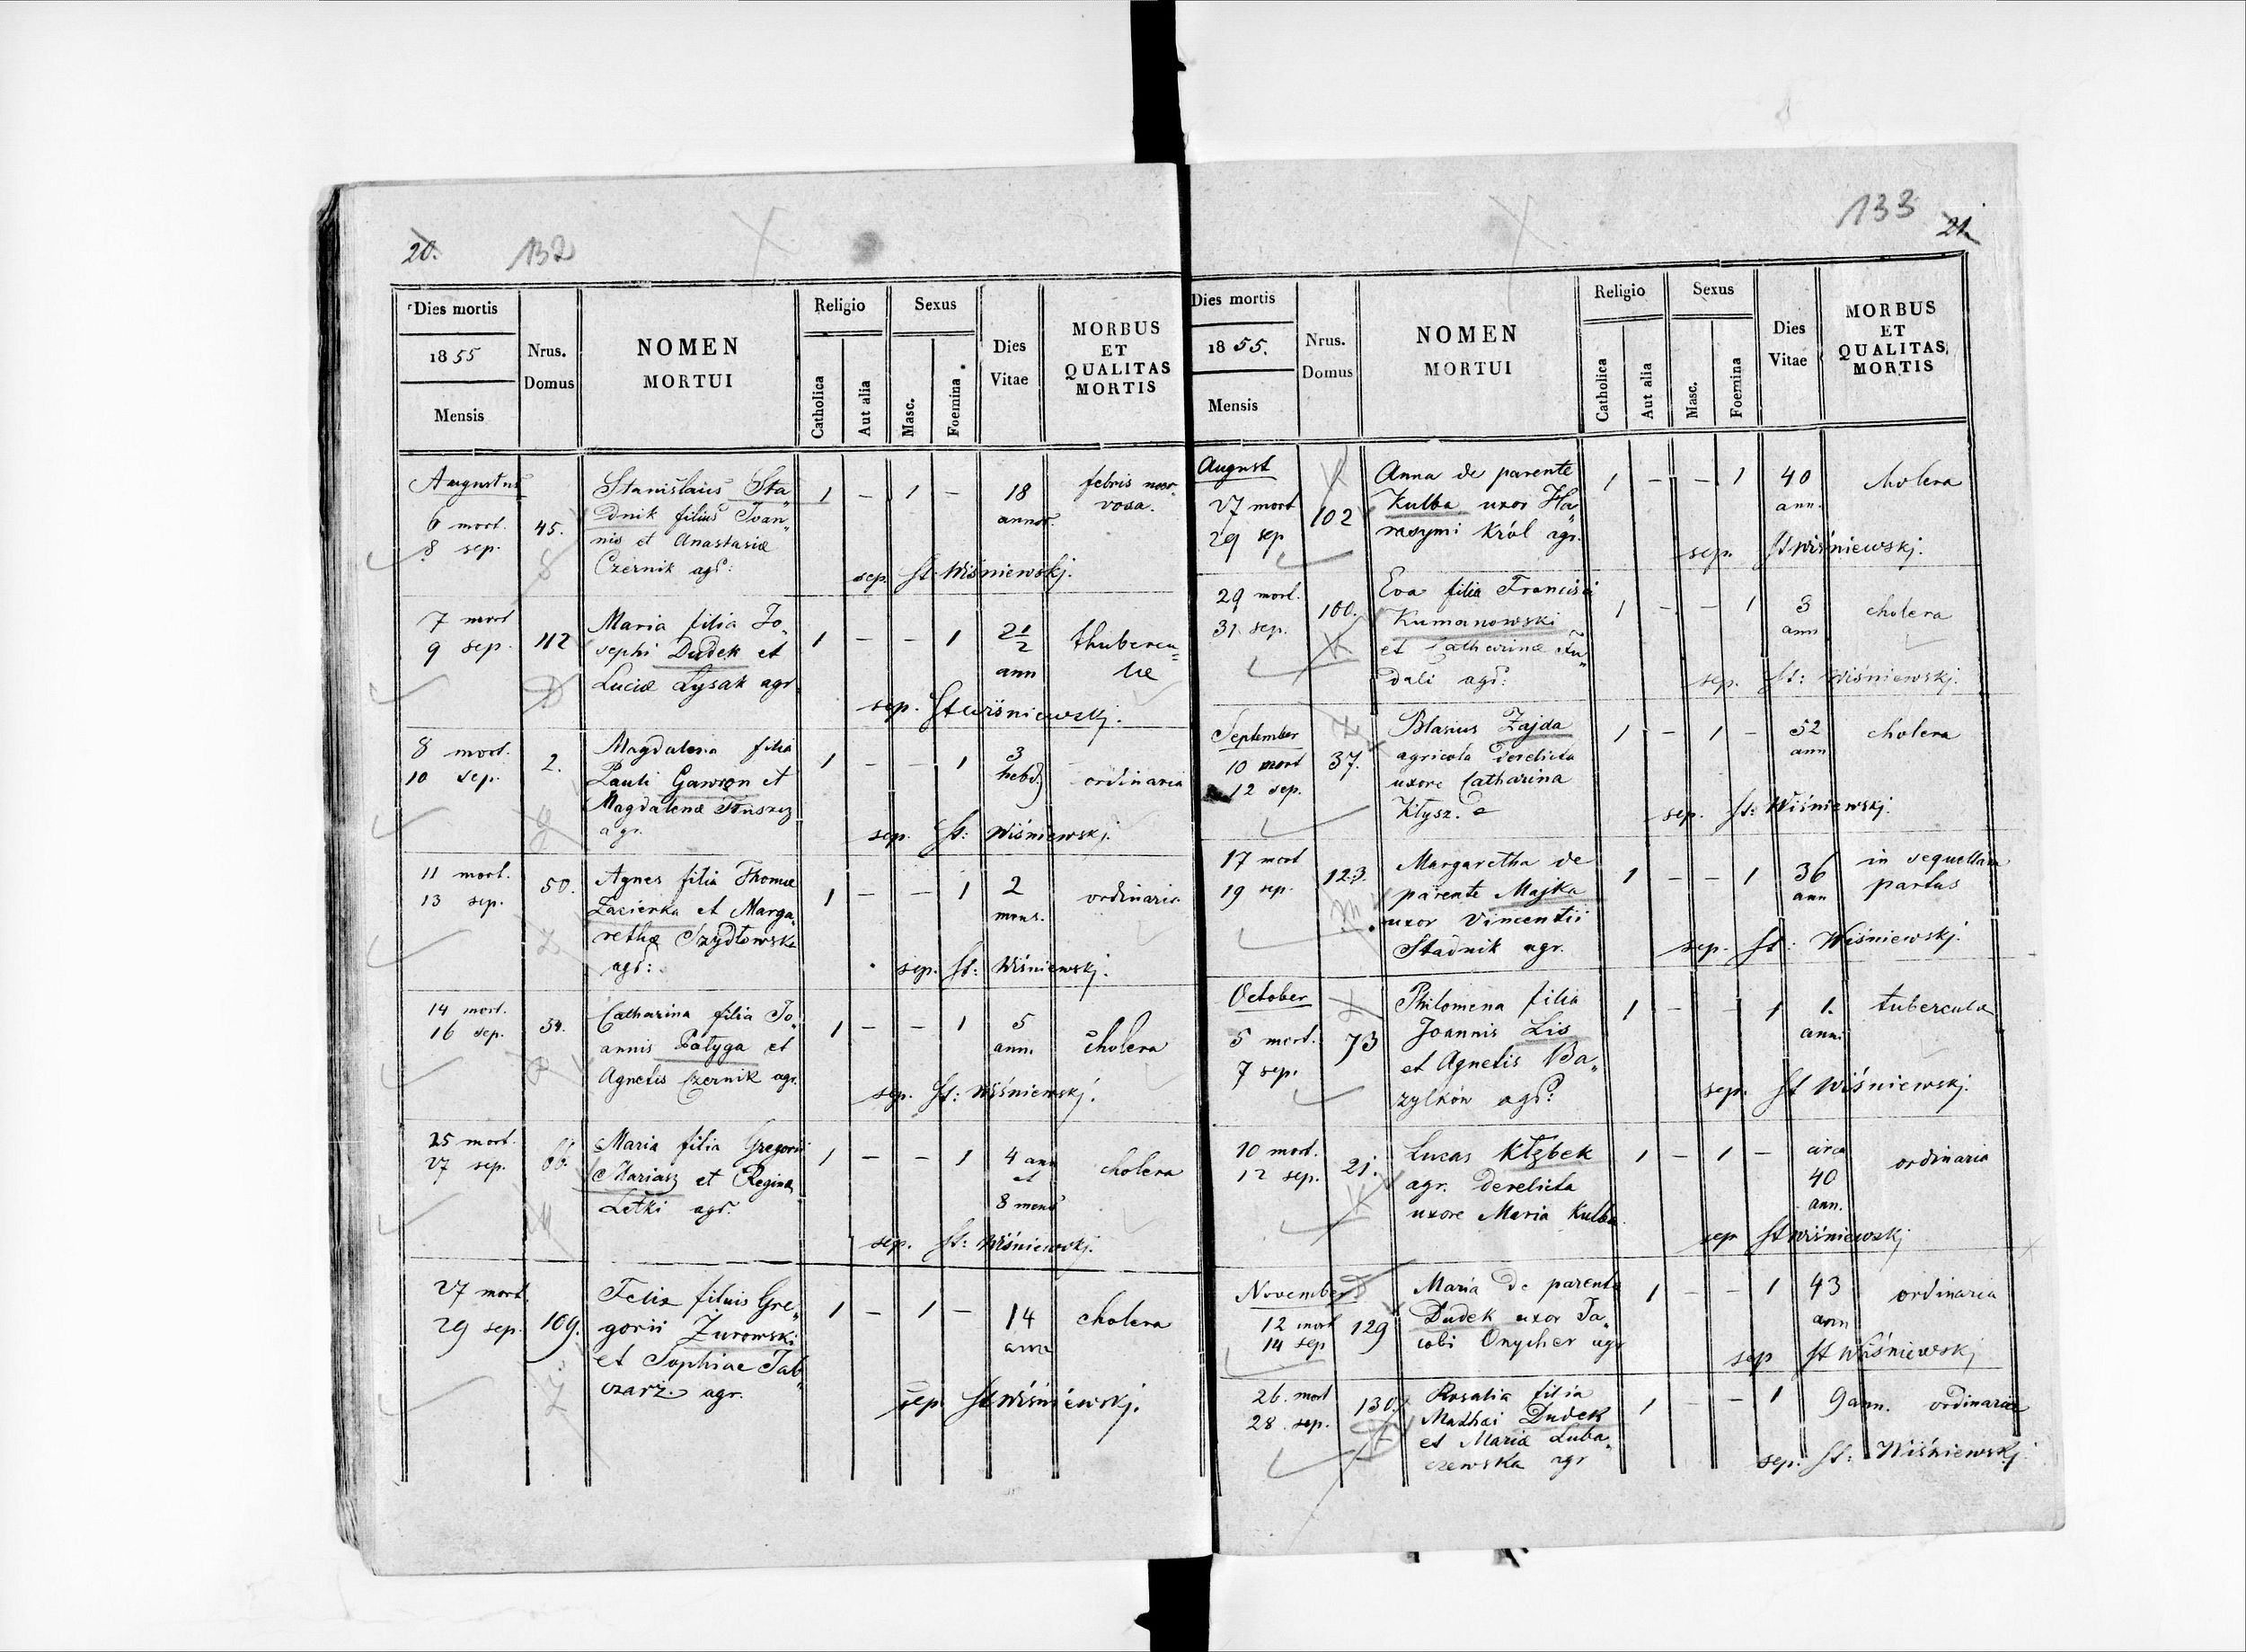 20.
132
Dies mortis
1855
Mensis
Nrus.
Domus
NOMEN
MORTUI
Religio
Catholica
Aut alia
Sexus
Masc.
Foemina
Dies
Vitae
MORBUS
ET
QUALITAS
MORTIS
Augustus
6 mort.
8 sep.
45.
Stanislaus Sta„
dnik filius Joan„
nis et Anastasiæ
Czernik agr:
1 – 1 –
18
annor.
febris ner„
vosa.
sep. St. Wiśniewskj.
7 mort
9 sep.
112
Maria filia Jo„
sephi Dudek et
Luciæ Łysak agr
1 – – 1
2 1/2
ann
thubercu„
læ
sep. St Wiśniewskj.
8 mort.
10 sep.
2.
Magdalena filia
Pauli Gawron et
Magdalenæ
agr.
1 – – 1
3
hebd
ordinaria
sep. St: Wiśniewskj.
11 mort.
13 sep.
50.
Agnes filia Thomæ
Zacierka et Marga„
rethæ Szydłowska
agr:
1 – – 1
2
mens.
ordinaria
sep. St: Wiśniewskj.
14 mort.
16 sep.
54.
Catharina filia Jo„
annis Pałyga et
Agnetis Czernik agr.
1 – – 1
5
ann.
cholera
sep. St: Wiśniewskj.
25 mort.
27 sep.
66.
Maria filia Gregorii
Mariasz et Reginæ
Letki agr.
1 – – 1
4 ann
et
8 mens
cholera
sep. St: Wiśniewskj.
27 mort.
29 sep.
109.
Felix filius Gre„
gorii Żurowski
et Sophiae Tab„
czarz. agr.
1 – 1 –
14
ann
cholera
sep St Wiśniewskj.
133
21.
Dies mortis
1855.
Mensis
Nrus.
Domus
NOMEN
MORTUI
Religio
Catholica
Aut alia
Sexus
Masc.
Foemina
Dies
Vitae
MORBUS
ET
QUALITAS
MORTIS
August
27 mort
29 sep
102
Anna de parente
Kulba uxor Ha„
rasymi Król agr.
1 – – 1
40
ann.
cholera
sep. St Wiśniewskj.
29 mort.
31. sep.
100.
Eva filia Francisci
Kumanowski
et Catharinæ Fu„
dali agr:
1 – – 1
3
ann
cholera
sep. St: Wiśniewskj.
September
10 mort
12 sep.
37.
Blasius Zajda
agricola derelicta
uxore Catharina
Kłysz.
1 – 1 –
52
ann
cholera
sep. St: Wiśniewskj.
17 mort
19 sep.
123.
Margaretha de
parente Majka
uxor Vincentii
Stadnik agr.
1 – – 1
36
ann
in sequellam
partus
sep. St: Wiśniewskj.
October
5 mort.
7 sep.
73
Philomena filia
Joannis Lis
et Agnetis Ba„
zylków agr:
1 – – 1
1.
anni
tuberculæ
sep. St Wiśniewskj.
10 mort.
12 sep.
21.
Lucas Kłębek
agr. derelicta
uxore Maria Kulba.
1 – 1 –
circa
40
ann.
ordinaria
sep St Wiśniewskj
November
12 mort
14 sep
129
Maria de parente
Dudek uxor Ja„
cobi Onycher agr
1 – – 1
43
ann
ordinaria
sep St Wiśniewskj
26. mort
28. sep.
130.
Rosalia filia
Mathæi Dudek
et Mariæ Luba„
czewska agr
1 – – 1
9 ann.
ordinariæ
sep. St: Wiśniewskj.